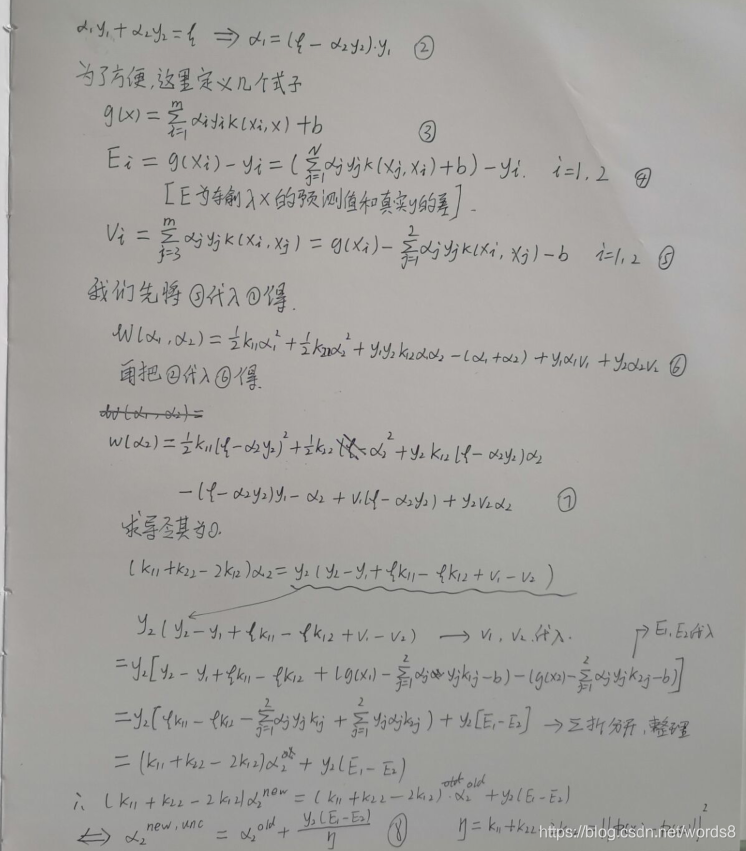 α₁y₁ + α₂y₂ = ξ ⇒ α₁ = (ξ - α₂y₂)·y₁ ②
为了方便,这里定义几个式子
g(x) = Σ_{i=1}^{m} αᵢyᵢk(xᵢ,x) + b ③
Eᵢ = g(xᵢ) - yᵢ = (Σ_{j=1}^{N} αⱼyⱼk(xⱼ,xᵢ) + b) - yᵢ. i=1,2 ④
[E为输入x的预测值和真实y的差].
Vᵢ = Σ_{j=3}^{m} αⱼyⱼk(xᵢ,xⱼ) = g(xᵢ) - Σ_{j=1}^{2} αⱼyⱼk(xᵢ,xⱼ) - b i=1,2 ⑤
我们先将⑤代入①得.
W(α₁,α₂) = ½k₁₁α₁² + ½k₂₂α₂² + y₁y₂k₁₂α₁α₂ - (α₁+α₂) + y₁α₁v₁ + y₂α₂v₂ ⑥
再把②代入⑥得.
W(α₁,α₂)=
W(α₂) = ½k₁₁(ξ-α₂y₂)² + ½k₂₂α₂² + y₂k₁₂(ξ-α₂y₂)α₂
-(ξ-α₂y₂)y₁ - α₂ + v₁(ξ-α₂y₂) + y₂v₂α₂ ⑦
求导令其为0.
(k₁₁+k₂₂-2k₁₂)α₂ = y₂(y₂-y₁+ξk₁₁-ξk₁₂+v₁-v₂)
y₂(y₂-y₁+ξk₁₁-ξk₁₂+v₁-v₂) → v₁,v₂代入. → E₁,E₂代入
= y₂[y₂-y₁+ξk₁₁-ξk₁₂+(g(x₁)-Σ_{j=1}^{2} αⱼyⱼk₁ⱼ-b)-(g(x₂)-Σ_{j=1}^{2} αⱼyⱼk₂ⱼ-b)]
= y₂[ξk₁₁-ξk₁₂-Σ_{j=1}^{2} αⱼyⱼk₁ⱼ+Σ_{j=1}^{2} yⱼαⱼk₂ⱼ)+y₂[E₁-E₂] → Σ拆分开,整理
= (k₁₁+k₂₂-2k₁₂)α₂^{old} + y₂(E₁-E₂)
∴ (k₁₁+k₂₂-2k₁₂)α₂^{new} = (k₁₁+k₂₂-2k₁₂)^{old}·α₂^{old} + y₂(E₁-E₂)
⇔ α₂^{new,unc} = α₂^{old} + y₂(E₁-E₂)/η ⑧ η = k₁₁+k₂₂
https://blog.csdn.net/words8